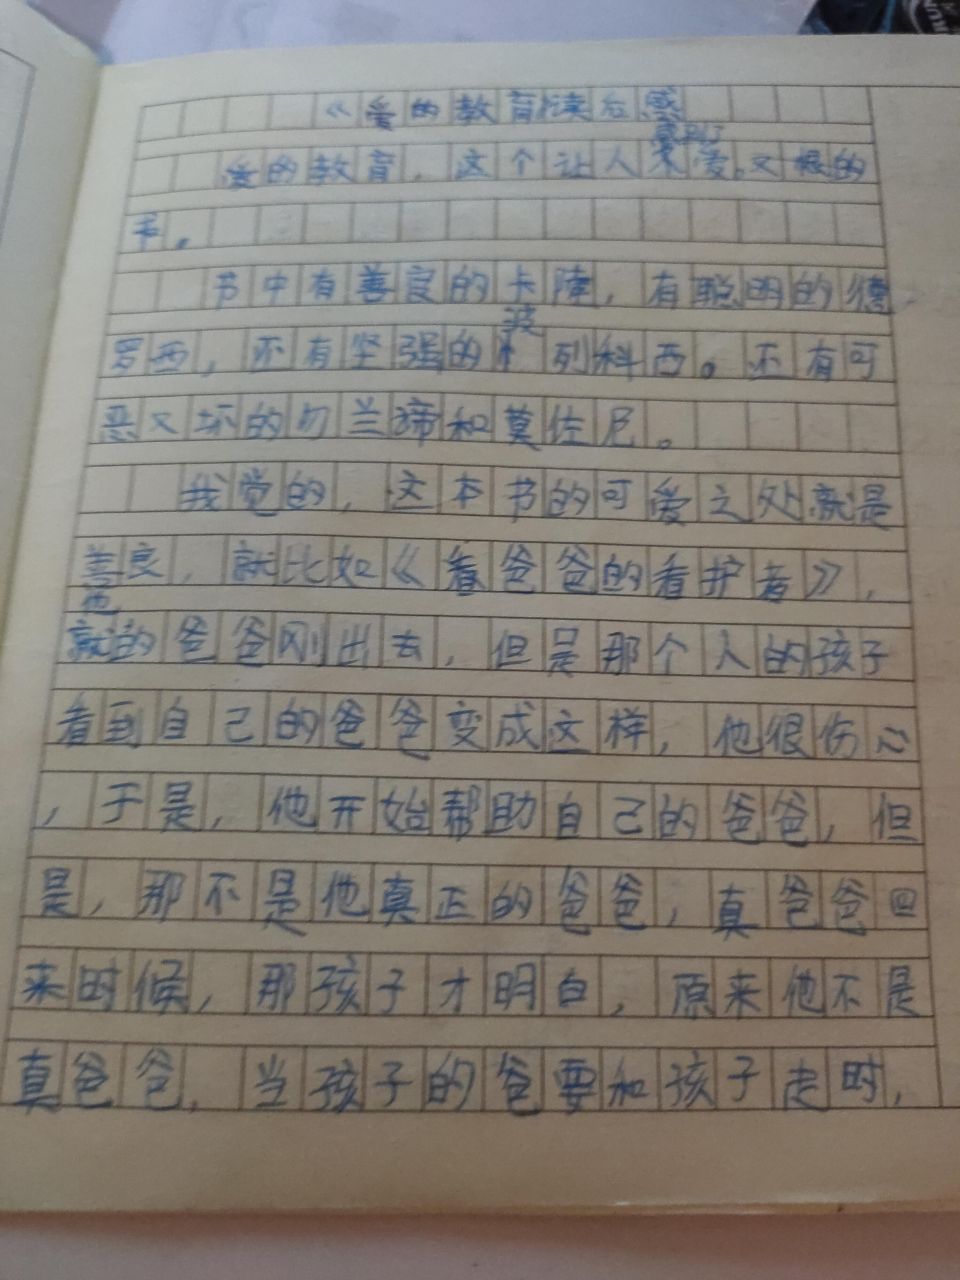 《爱的教育读后感
爱的教育，这个让人又爱又恨的
书。
书中有善良的卡隆，有聪明的德
罗西，还有坚强的波列科西。还有可
恶又坏的勿兰谛和莫佐尼。
我觉的，这本书的可爱之处就是
善良，就比如《看爸爸的看护者》，
他的爸爸刚出去，但是那个人的孩子
看到自己的爸爸变成这样，他很伤心
，于是，他开始帮助自己的爸爸，但
是，那不是他真正的爸爸，真爸爸回
来时候，那孩子才明白，原来他不是
真爸爸，当孩子的爸要和孩子走时，